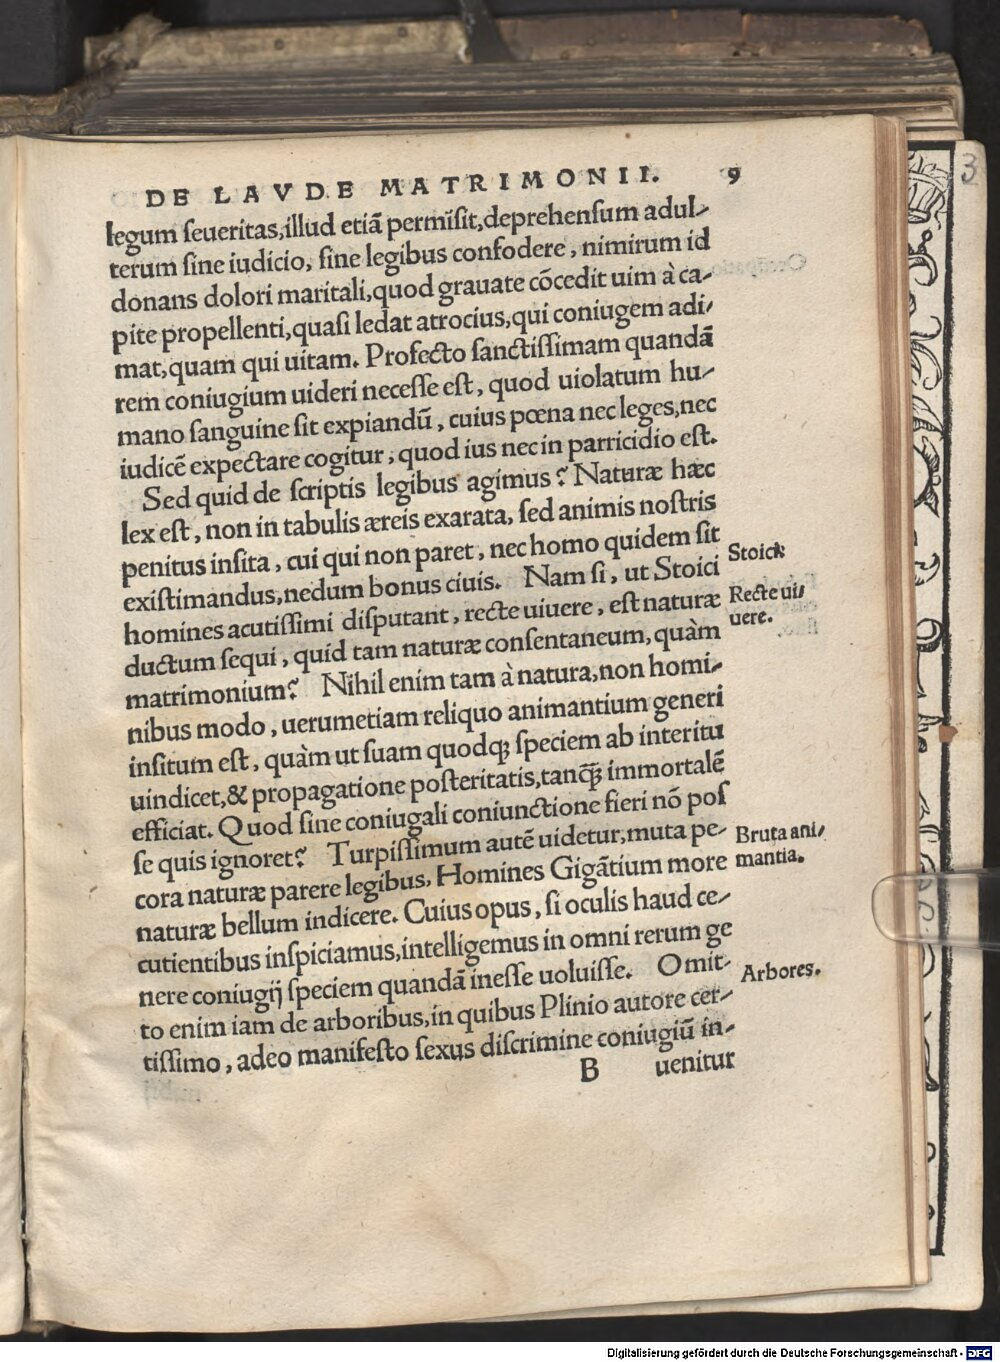 DE LAVDE MATRIMONII. 9
legum ſeueritas, illud etiã permiſit, deprehenſum adul-
terum ſine iudicio, ſine legibus confodere, nimirum id
donans dolori maritali, quod grauate cõcedit uim à ca-
pite propellenti, quaſi ledat atrocius, qui coniugem adi-
mat, quam qui uitam. Profecto ſanctiſſimam quandã
rem coniugium uideri neceſſe eſt, quod uiolatum hu-
mano ſanguine ſit expiandũ, cuius pœna nec leges, nec
iudicẽ expectare cogitur, quod ius nec in parricidio eſt.
Sed quid de ſcriptis legibus agimus? Naturæ hæc
lex eſt, non in tabulis æreis exarata, ſed animis noſtris
penitus inſita, cui qui non paret, nec homo quidem ſit
exiſtimandus, nedum bonus ciuis. Nam ſi, ut Stoici
homines acutiſſimi diſputant, recte uiuere, eſt naturæ
ductum ſequi, quid tam naturæ conſentaneum, quàm
matrimonium? Nihil enim tam à natura, non homi-
nibus modo, uerumetiam reliquo animantium generi
inſitum eſt, quàm ut ſuam quodq; ſpeciem ab interitu
uindicet, & propagatione poſteritatis, tanq̃; immortalẽ
efficiat. Quod ſine coniugali coniunctione fieri nõ poſ
ſe quis ignoret? Turpiſſimum autẽ uidetur, muta pe-
cora naturæ parere legibus, Homines Gigãtium more
naturæ bellum indicere. Cuius opus, ſi oculis haud ce-
cutientibus inſpiciamus, intelligemus in omni rerum ge
nere coniugij ſpeciem quandã ineſſe uoluiſſe. Omit-
to enim iam de arboribus, in quibus Plinio autore cer-
tiſſimo, adeo manifeſto ſexus diſcrimine coniugiũ in-
B uenitur
Stoici
Recte ui-
uere.
Bruta ani-
mantia.
Arbores.
3
Digitalisierung gefördert durch die Deutsche Forschungsgemeinschaft - DFG